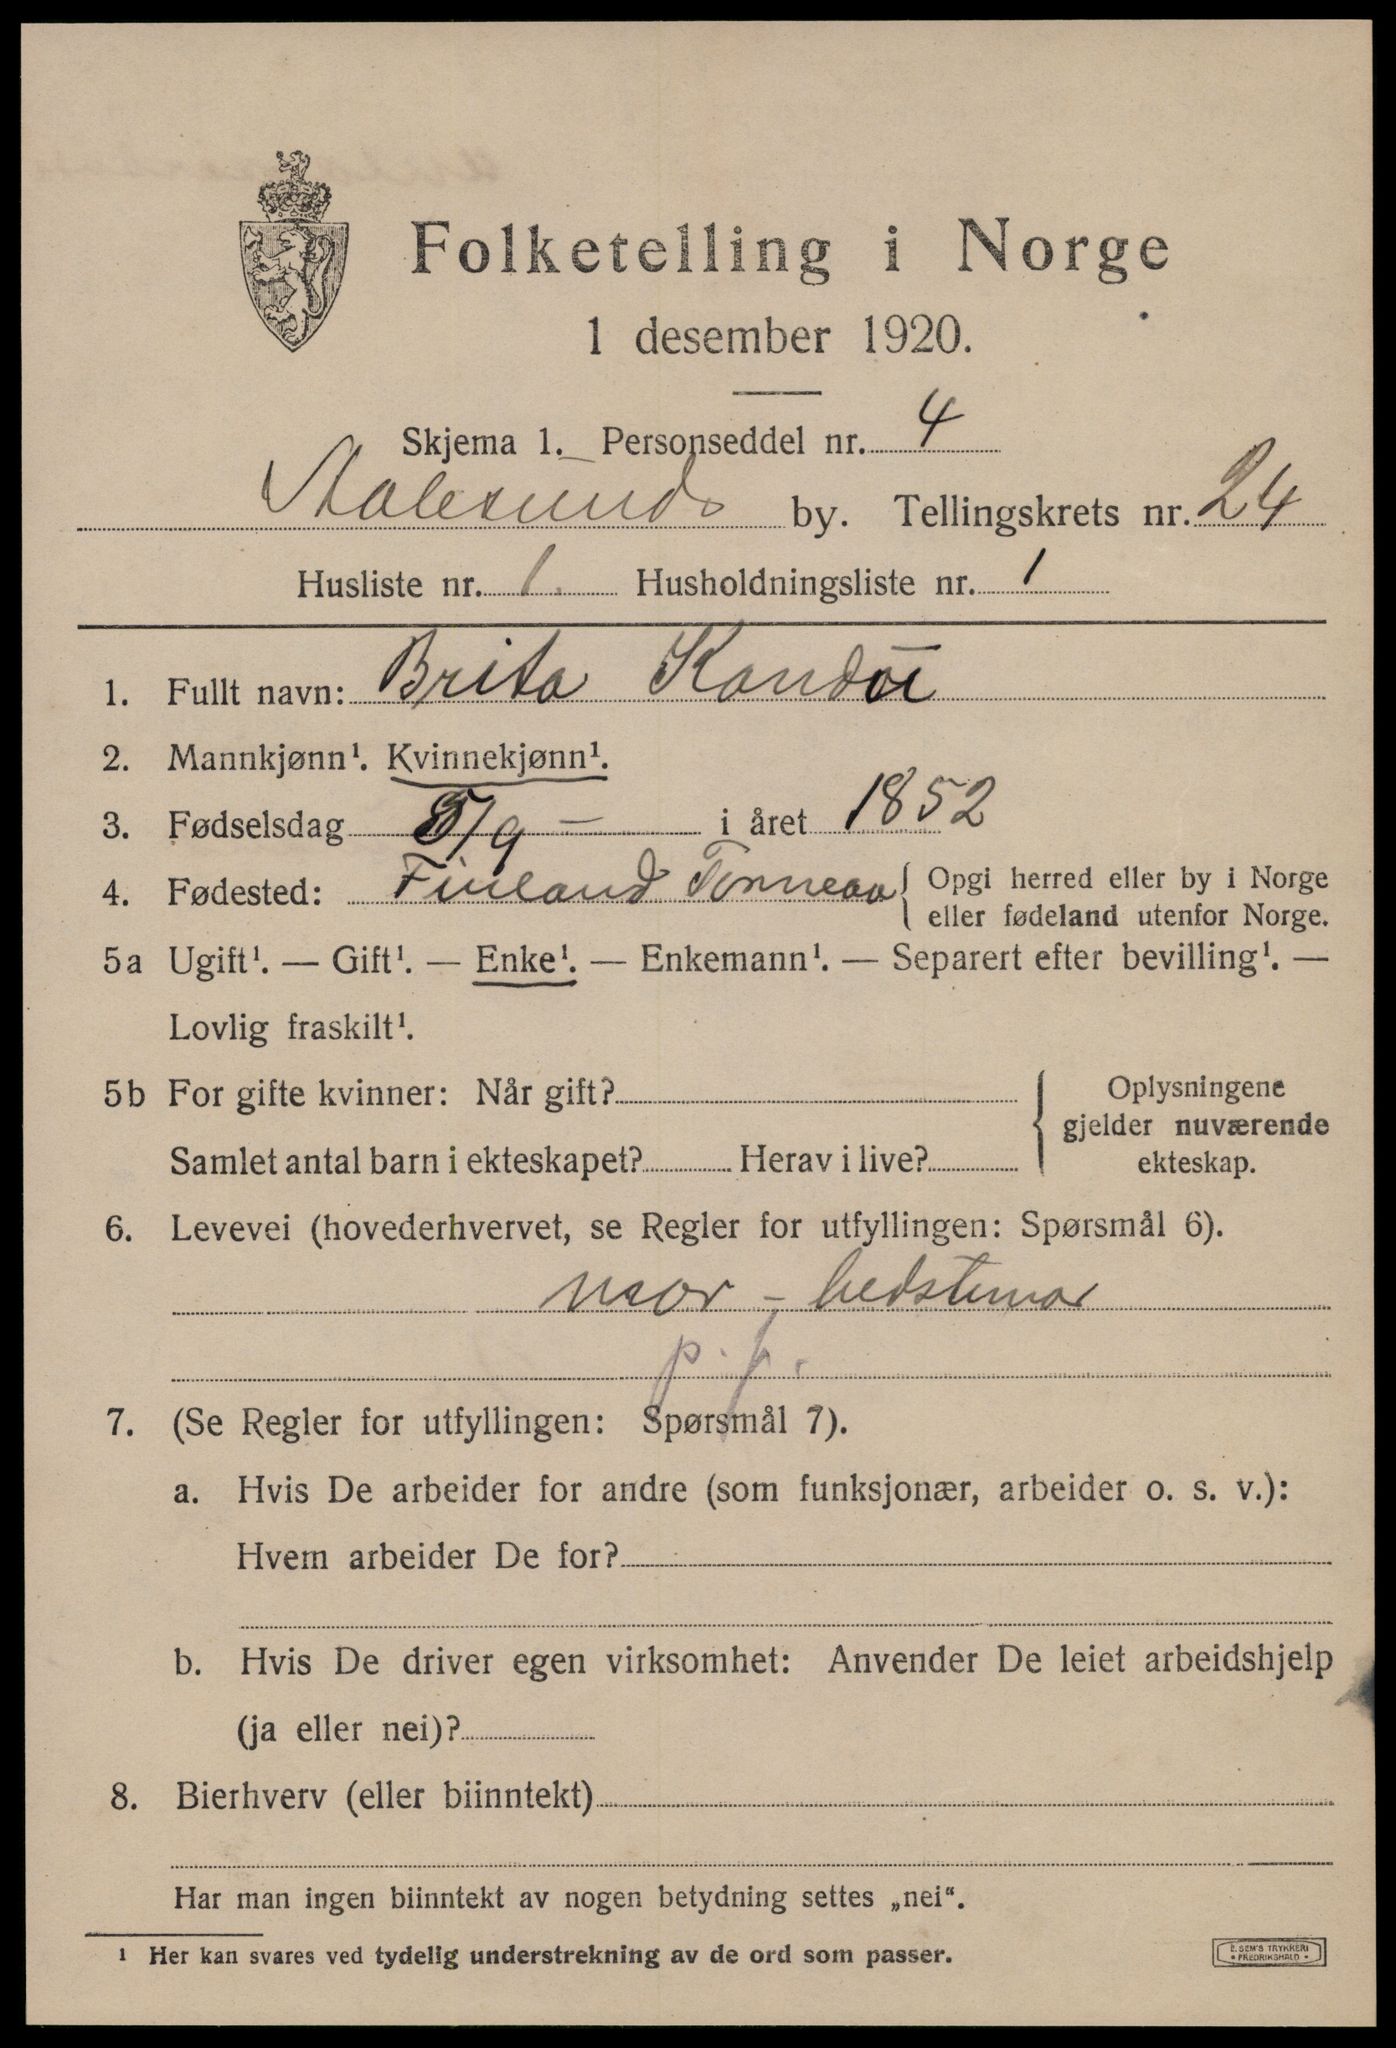 Folketelling i Norge
1 desember 1920.
Skjema 1. Personseddel nr. 4
Aalesunds by. Tellingskrets nr. 24
Husliste nr. 1. Husholdningsliste nr. 1
1. Fullt navn: Brita Kandöi
2. Mannkjønn¹. Kvinnekjønn¹.
3. Fødselsdag 5/9 — i året 1852
4. Fødested: Finland Tornea { Opgi herred eller by i Norge
eller fødeland utenfor Norge.
5a Ugift¹. — Gift¹. — Enke¹. — Enkemann¹. — Separert efter bevilling¹. —
Lovlig fraskilt¹.
5b For gifte kvinner: Når gift? Oplysningene
gjelder nuværende
Samlet antal barn i ekteskapet? Herav i live? ekteskap.
6. Levevei (hovederhvervet, se Regler for utfyllingen: Spørsmål 6).
mor - bedstemor
p. f.
7. (Se Regler for utfyllingen: Spørsmål 7).
a. Hvis De arbeider for andre (som funksjonær, arbeider o. s. v.):
Hvem arbeider De for?
b. Hvis De driver egen virksomhet: Anvender De leiet arbeidshjelp
(ja eller nei)?
8. Bierhverv (eller biinntekt)
Har man ingen biinntekt av nogen betydning settes „nei“.
¹ Her kan svares ved tydelig understrekning av de ord som passer.
E. SEM'S TRYKKERI
• FREDRIKSHALD •